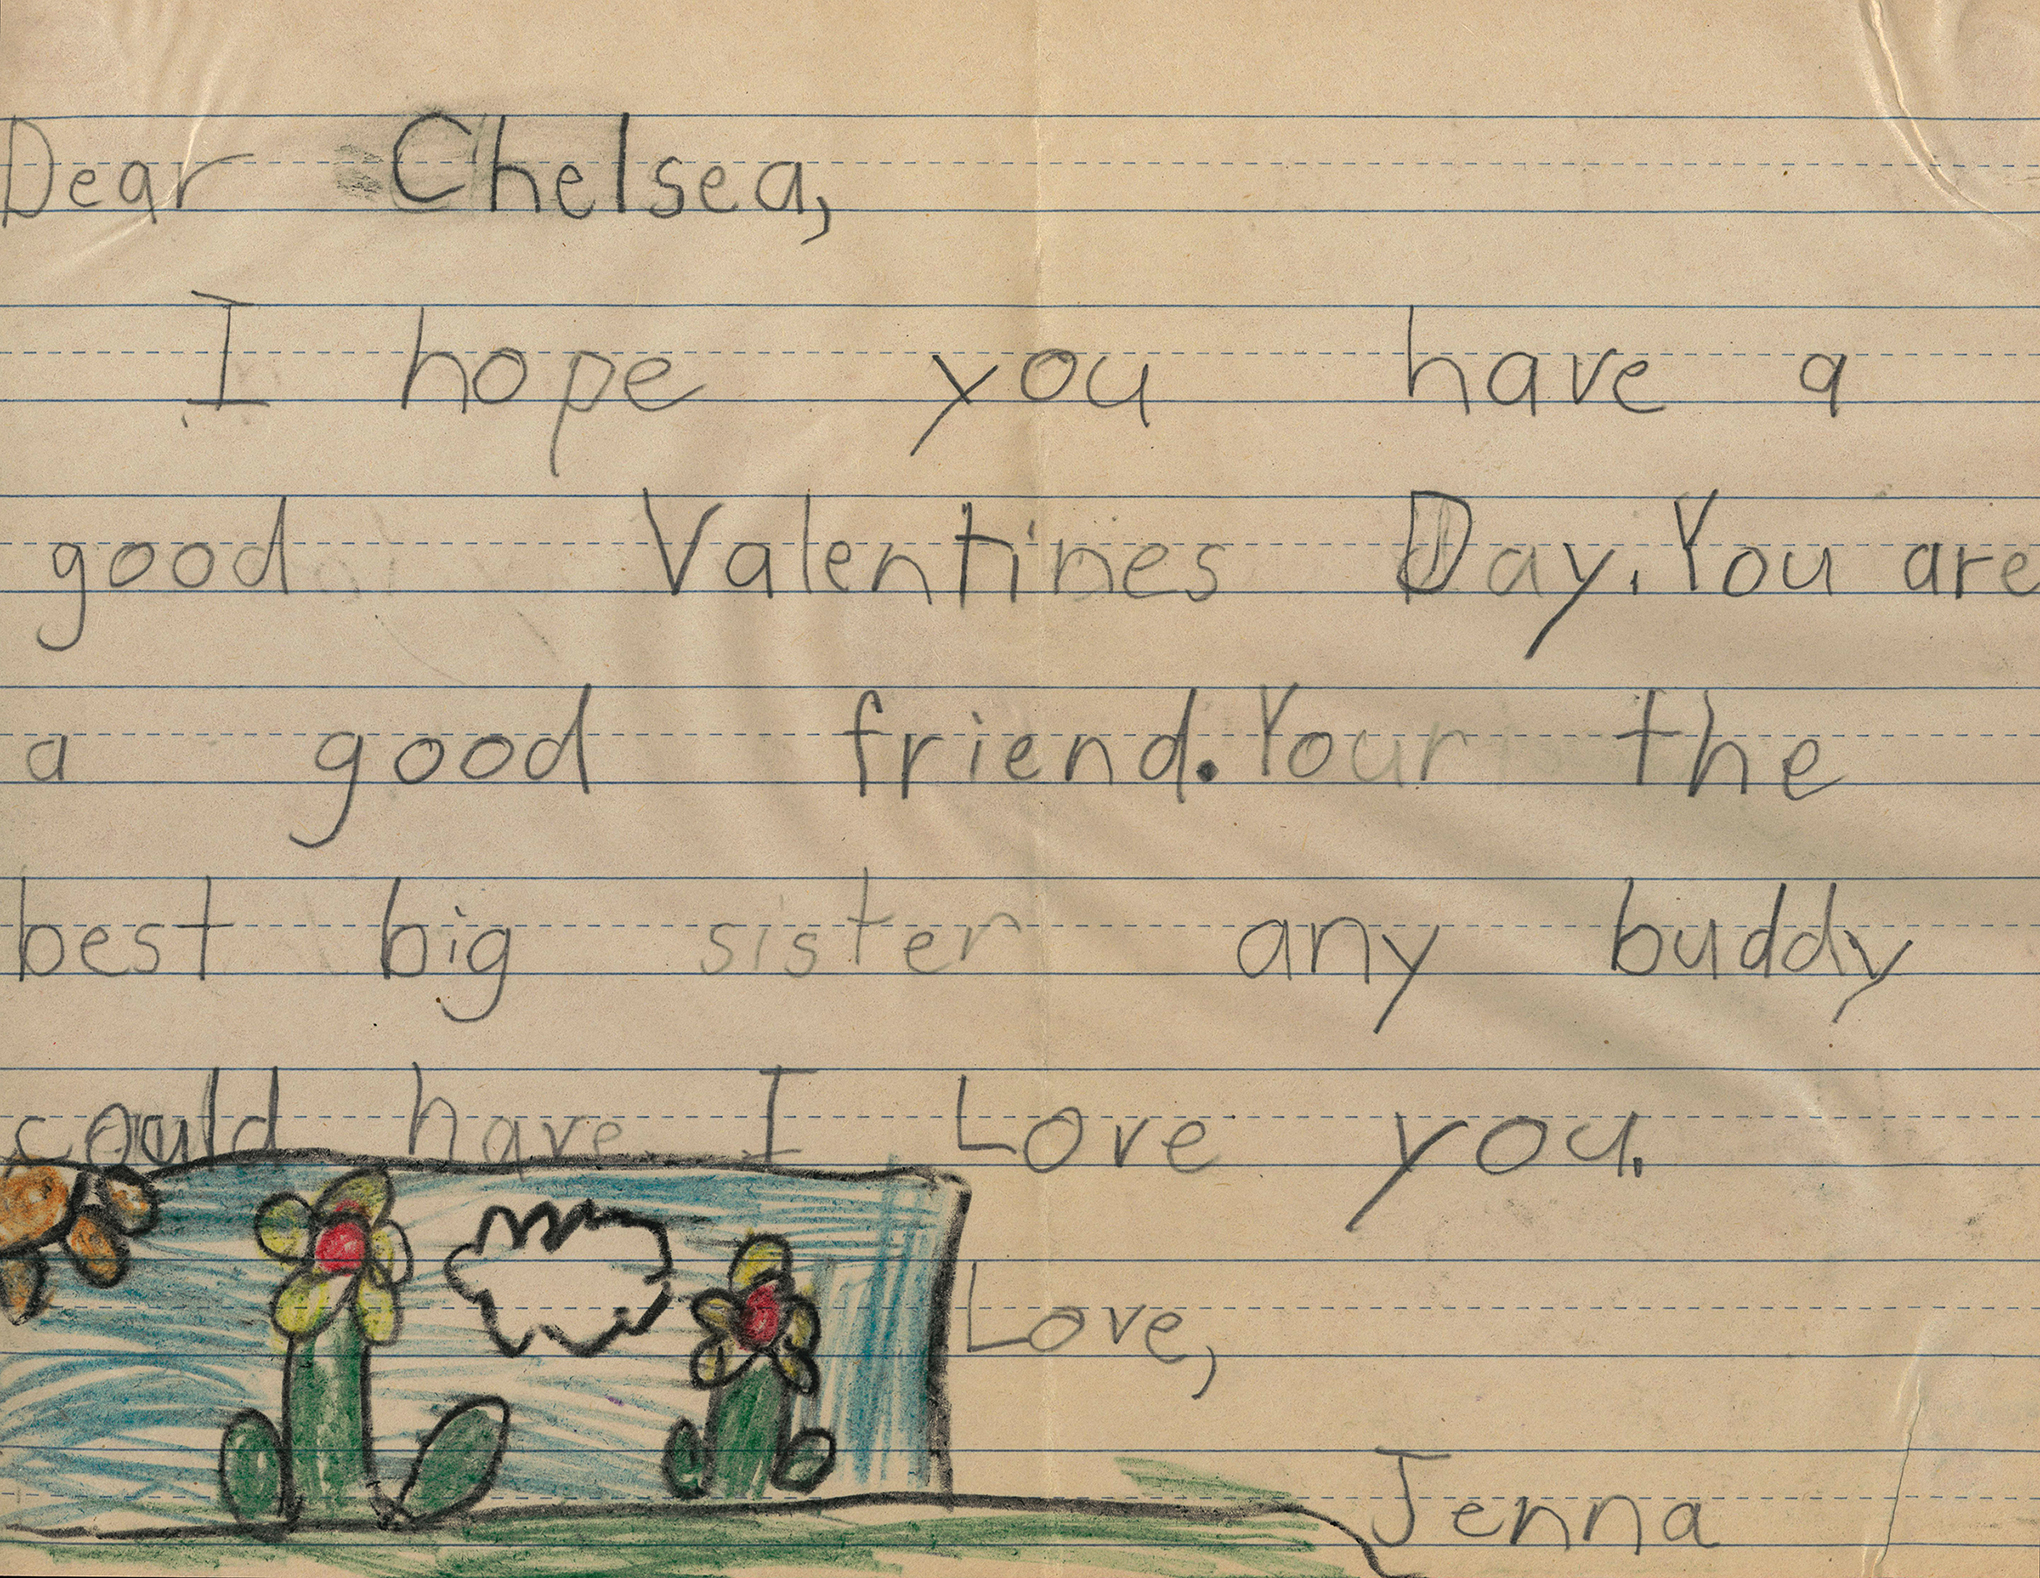 Dear Chelsea,
I hope you have a
good Valentines Day. You are
a good friend. Your the
best big sister any buddy
could have. I Love you.
Love,
Jenna